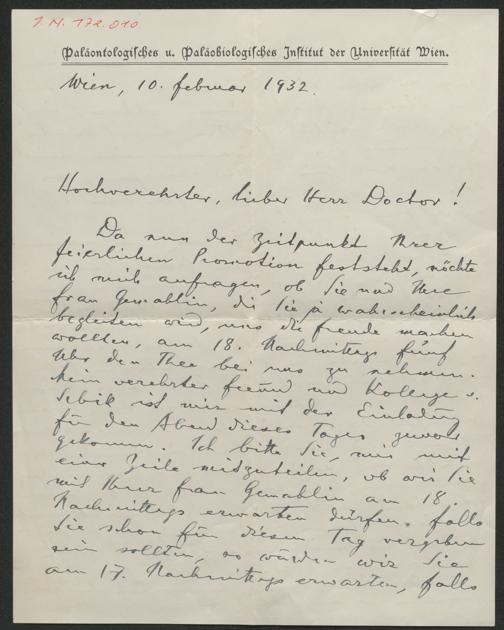 J.N. 172.010
Paläontologisches u. Paläobiologisches Institut der Universität Wien.
Wien, 10. Februar 1932.
Hochverehrter, lieber Herr Doctor!
Da nun der Zeitpunkt Ihrer
feierlichen Promotion feststeht, möchte
ich mich anfragen, ob Sie und Ihre
Frau Gemahlin, die Sie ja wahrscheinlich
begleiten wird, uns die Freude machen
wollten, am 18. Nachmittags fünf
Uhr den Thee bei uns zu nehmen.
Mein verehrter Freund und Kollege v.
Srbik ist mir mit der Einladung
für den Abend dieses Tages zuvor
gekommen. Ich bitte Sie, mir mit
einer Zeile mitzuteilen, ob wir Sie
mit Ihrer Frau Gemahlin am 18.
Nachmittags erwarten dürfen. Falls
Sie schon für diesen Tag vergeben
sein sollten, so würden wir Sie
am 17. Nachmittags erwarten, falls